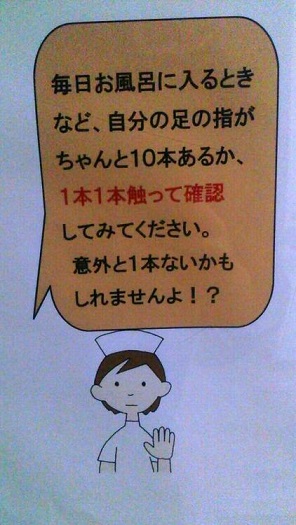 毎日お風呂に入るとき
など、自分の足の指が
ちゃんと10本あるか、
1本1本触って確認
してみてください。
意外と1本ないかも
しれませんよ！？